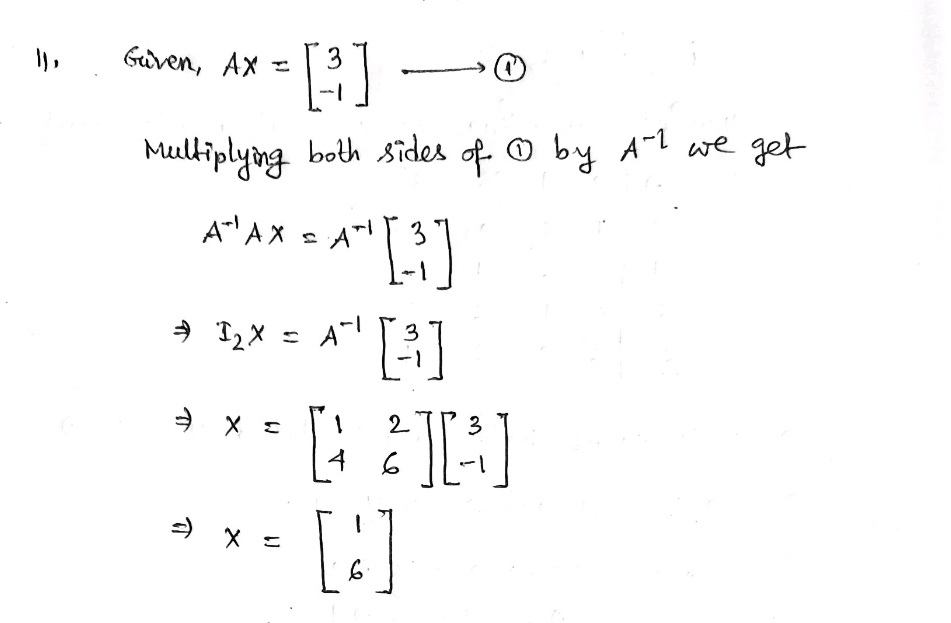 11. Given, AX = [3 -1] ⟶ ①
Multiplying both sides of ① by A⁻¹ we get
A⁻¹AX = A⁻¹ [3 -1]
⇒ I₂X = A⁻¹ [3 -1]
⇒ X = [1 2 4 6] [3 -1]
⇒ X = [1 6]